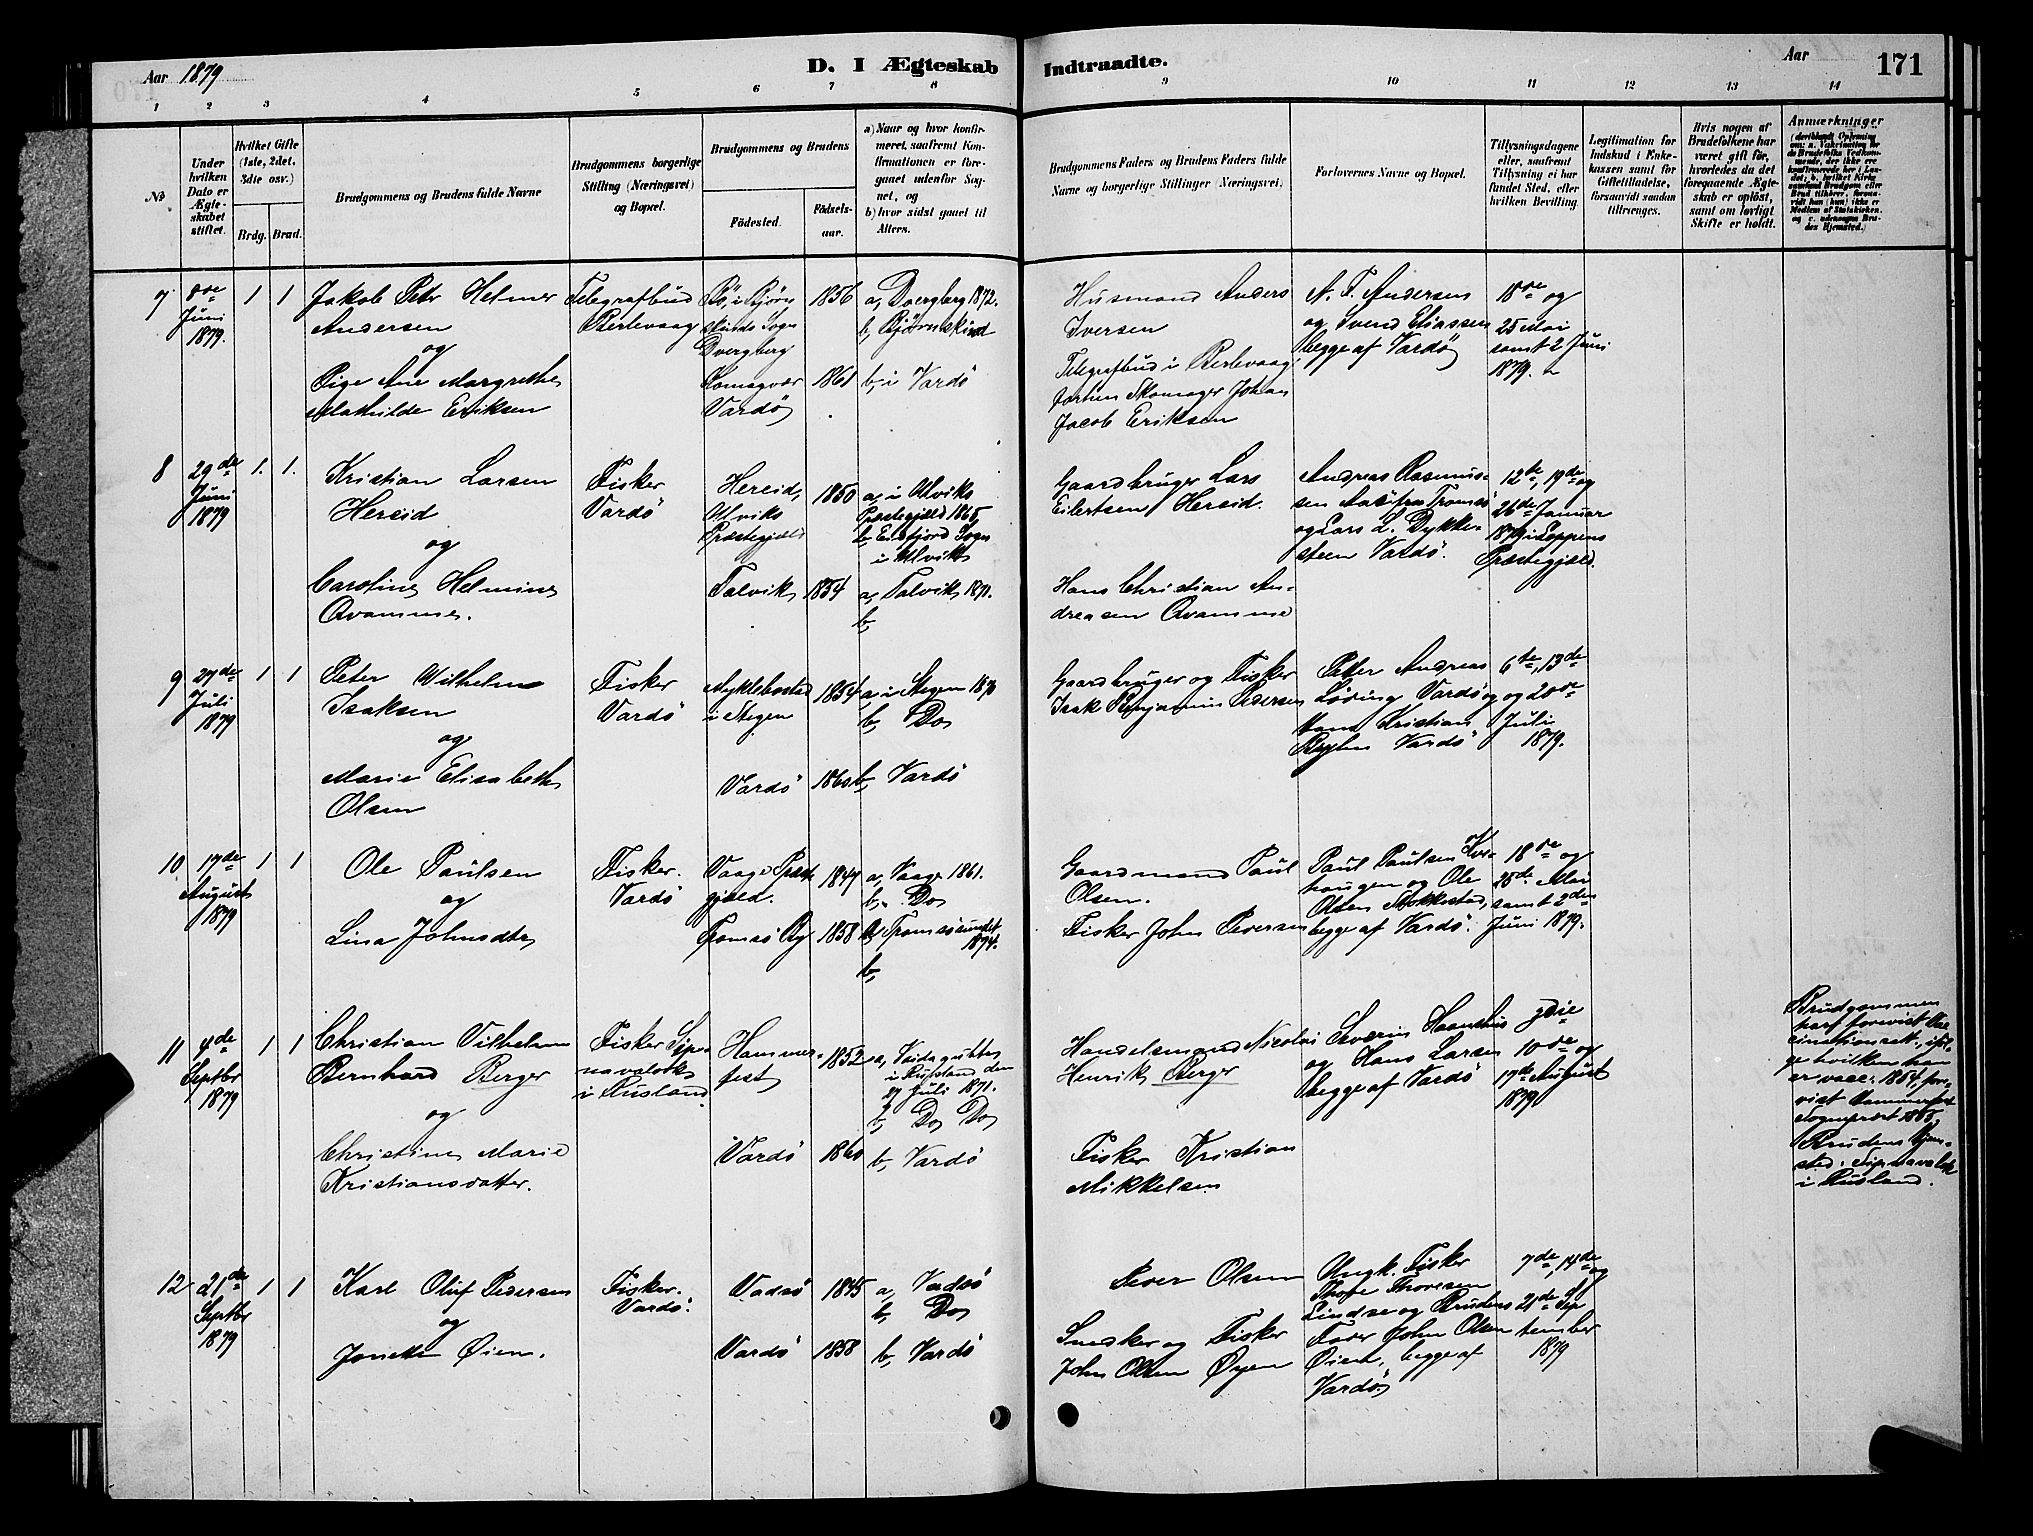 Aar 1879
D. I Ægteskab
Indtraadte.
Aar
171
1 2 3 4 5 6 7 8 9 10 11 12 13 14
No
Under
hvilken
Dato er
Ægte-
skabet
stiftet.
Hvilket Gifte
(1ste, 2det,
3die osv.)
Brdg. Brud.
Brudgommens og Brudens fulde Navne
Brudgommens borgerlige
Stilling (Næringsvei)
og Bopæl.
Brudgommens og Brudens
Fødested.
Fødsels-
aar.
a) Naar og hvor konfir-
meret, saafremt Kon-
firmationen er fore-
gaaet udenfor Sog-
net, og
b) hvor sidst gaaet til
Alters.
Brudgommens Faders og Brudens Faders fulde
Navne og borgerlige Stillinger (Næringsvei.)
Forlovernes Navne og Bopæl.
Tillysningsdagene
eller, saafremt
Tillysning ei har
fundet Sted, efter
hvilken Bevilling.
Legitimation for
Indskud i Enke-
kassen samt for
Giftetilladelse,
forsaavidt saadan
tiltrænges.
Hvis nogen af
Brudefolkene har
været gift før,
hvorledes da det
foregaaende Ægte-
skab er opløst,
samt om lovligt
Skifte er holdt.
Anmærkninger
7
8de
Juni
1879.
1 1
Jakob Petr Helmer
Andersen
og
Pige Ane Margrethe
Mathilde Eriksen
Telegrafbud
Berlevaag
Bø, i Bjørn
skinds Sogn
Dvergberg
Komagvær
Vardö
1856
1861
a, Dvergberg 1872.
b, Bjørnskind
b, i Vardö
Husmand Anders
Iversen
Telegrafbud i Berlevaag
forhen Skomager Johan
Jacob Eriksen
A. F. Andersen
og Svend Eliassen
begge af Vardö
18de og
25 Mai
samt 2 Juni
1879.
8
29de
Juni
1879
1. 1.
Kristian Larsen
Hereid
og
Caroline Helmine
Qvamme.
Fisker
Vardö
Hereid,
Ulviks
Præstegjæld
Talvik
1850
1854
a, i Ulviks
Præstegjæld 1865
b, Eidfjord Sogn
i Ulvik
a, Talvik 1871.
b,
Gaardbruger Lars
Eilertsen Hereid.
Hans Christian An-
dreasen Qvamme
Andreas Rasmus-
sen fra Tromsö
og Lars L. Dykke-
steen Vardö.
12te, 19de og
26de Januar
1879 i Loppens
Præstegjæld.
9
27de
Juli
1879
1 1
Peter Wilhelm
Isaksen
og
Marie Elisabeth
Olsen
Fisker
Vardö
Myklebostad
i Stegen
Vardö
1854
1860
a, i Stegen 1870
b, Do
b, Vardö
Gaardbruger og Fisker
Isak Benjamin Pedersen
Petter Andreas
Løding Vardö og
Hans Kristian
Vardö
6te, 13de
og 20de
Juli
1879.
10
17de
August
1879
1 1
Ole Paulsen
og
Lina Johnsdtr
Fisker.
Vardö
Vaage Præste
gjæld.
Tromsö By
1847
1858
a, Vaage 1861.
b, Do
a, Tromsösundet
1874.
b,
Gaardmand Paul
Olsen.
Fisker John Iversen
Paul Paulsen Kver-
haugen og Ole
Olsen Stokkestad,
begge af Vardö.
18de og
25de Mai
samt 2den
Juni 1879.
11
4de
Septbr
1879
1 1
Christian Vilhelm
Bernhard Berger
og
Christine Marie
Kristiansdatter.
Fisker Sip-
navalok
i Rusland
Hammer-
fest
Vardö
1852
1860
a, Vaidagubben
i Rusland den
27 Juli 1871.
b, Do Do
b, Vardö
Handelsmand Nicolai
Henrik Berger
Fisker Kristian
Mikkelsen
Severin Haanshus
og Hans Larsen
begge af Vardö
3die
10de og
17de August
1879
Brudgommen
har forevist Vac
cinationsatt., iføl-
ge hvilken han
er vacc: 1854,
Hammerfest
1865,
Brudens Hjem-
sted: Sipnavalok
i Rusland.
12
21de
Septbr
1879
1 1
Karl Oluf Pedersen
og
Jonette Øien.
Fisker.
Vardö.
Vadsö
Vardö
1845
1858
a, Vadsö
b, Do
b, Vardö
Peder Olsen
Snedker og Fisker
John Olsen Øyen
Ungk. Fisker
Thore Thoresen
Lindse og Brudens
Fader John Olsen
Øien, begge af
Vardö
7de, 14de og
21de Sep
tember
1879